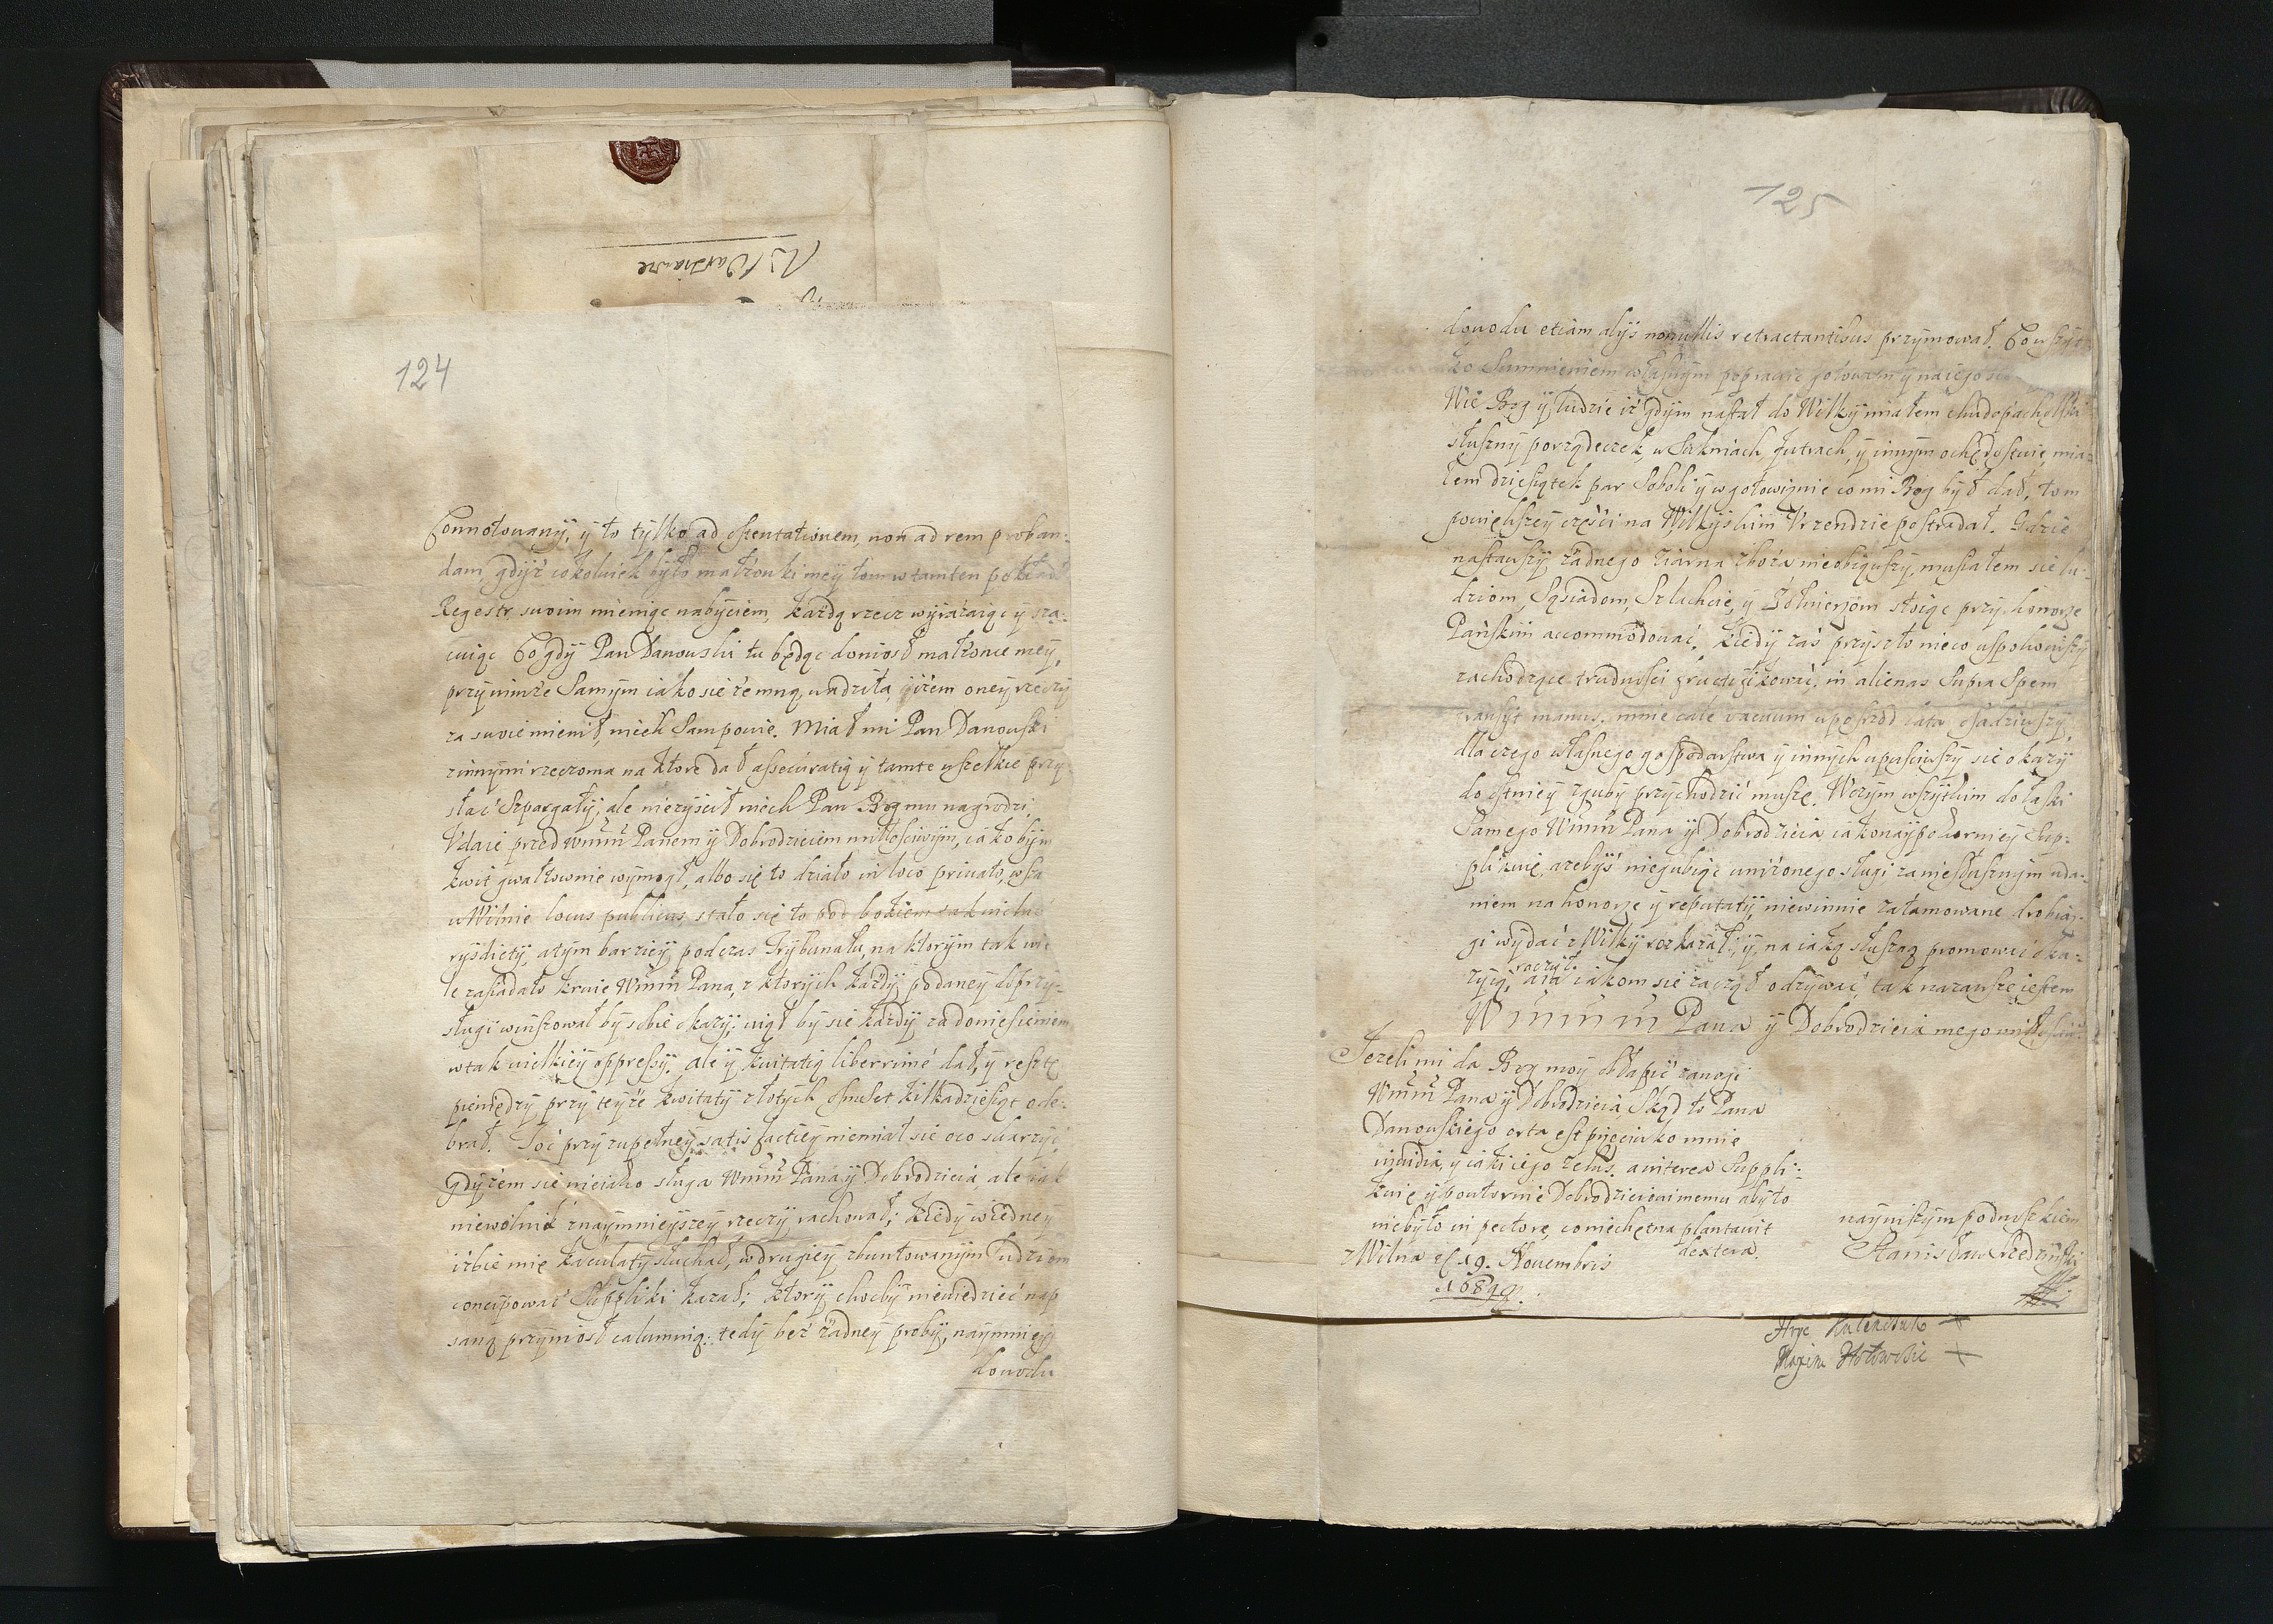 w Warszawie
124
Connotowany, y to tylko ad ostentationem, non ad rem proban-
dam, gdyż cokolwiek było małżonki mey tom w tamten pokład
Regestr swoim mieniąc nabyciem, każdą rzecz wyrażaiąc y sza-
cuiąc Co gdy Pan Danowski tu będąc doniosł małżonce mey,
przy nimże Samym iako się ze mną wadziła, żem oney rzeczy
za swoie mienił, niech Sam powie. Miał mi Pan Danowski
z innymi rzeczoma na ktore dał assecuratią y tamte wszelkie przy
słać Szpargały, ale nieziścił niech Pan Bog mu nagrodzi.
Udaie przed Wmm Panem y Dobrodzieiem miłościwym, iakobym
kwit gwałtownie wymogł, albo się to działo in loco privato, wsza
w Wilnie locus publicus, stało się to pod bokiem
rysdicty, a tym barziey podczas Trybunału, na ktorym tak wie
le zasiadało Krwie Wmm Pana, z ktorych każdy podaney do przy-
sługi winszował by sobie okazy; uiął by się każdy za doniesieniem
w tak wielkiey oppressy. ale y kwitatią liberrimè dał, y resztę
pieniędzy przy teyże kwitaty złotych osmset kilkadziesiąt ode-
brał. Toć przy zupełney satisfactiey niemiał się oco skarżyć,
Gdyżem się nie iako sługa Wmm Pana y Dobrodzieia, ale iak
niewolnik z naymnieyszey rzeczy rachował; kiedy w iedney
izbie mię kalculaty słuchał, w drugiey zbuntowanym ludziom
concipować Suppliki kazał; ktory choćby niewiedzieć nap
saną przyniosł calumnią: tedy bez żadney proby, naymniey
dowodu
125
dowodu etiam alys nonullis retractantibus przymował. Co wszyt
ko Sumnieniem własnym poprawić gotowem y na iego
Wie Bog y ludzie iż gdym nastał do Wilky miałem chudopacholski
słuszny porządeczek, w Sukniach, futrach, y innym ochędostwie, mia-
łem dziesiątek par Soboli y w gotowiznie co mi Bog był dał, tom
powiększey części na Wilkyskim Urzendzie postradał. Gdzie
nastawszy żadnego ziarna zboża nieobiąwszy, musiałem się lu-
dziom, Sąsiadom, Szlachcie, y Żołnierzom stoiąc przy honorze
Pańskim accommodować. Kiedy zaś przyszło nieco uspokoiwszy
zachodzące trudności fructifikować, in alienas Supra Spem
transyt manus. mnie cale vacuum upośrzod lata osadziwszy,
dla czego własnego gospodarstwa y innych upuściwszy się okazy
do istniey zguby przychodzić muszę. W czym wszytkim do łaski
Samego Wmm Pana y Dobrodzieia iako naypokorniey Sup-
plikuię, ażebyś niegubiąc uniżonego sługi za niesłusznym uda-
niem na honorze y reputaty, niewinnie zatamowane drobiaz-
gi wydać z Wilky rozkazał, y na iaką słuszną promować oka-
zyią, raczył. a ia iakom się zaczął odzywać, tak na zawsze iestem
Wmm m Pana y Dobrodzieia mego miłościw:
Jezeli mi da Bog moy obłapić zanogi
Wmm Pana y Dobrodzieia Skąd to Pana
Danowskiego orta est pięciu ko mnie
invidia, y iaki iego zelus. a interea Suppli-
kuię y powtornie Dobrodzieiowi memu aby to
niebyło in pectore, co niechętna plantavit
dextera.
z Wilna d. 19. Novembris
1689
nayniższym podnożkiem
Stanisław
Hryc +
Maxim +